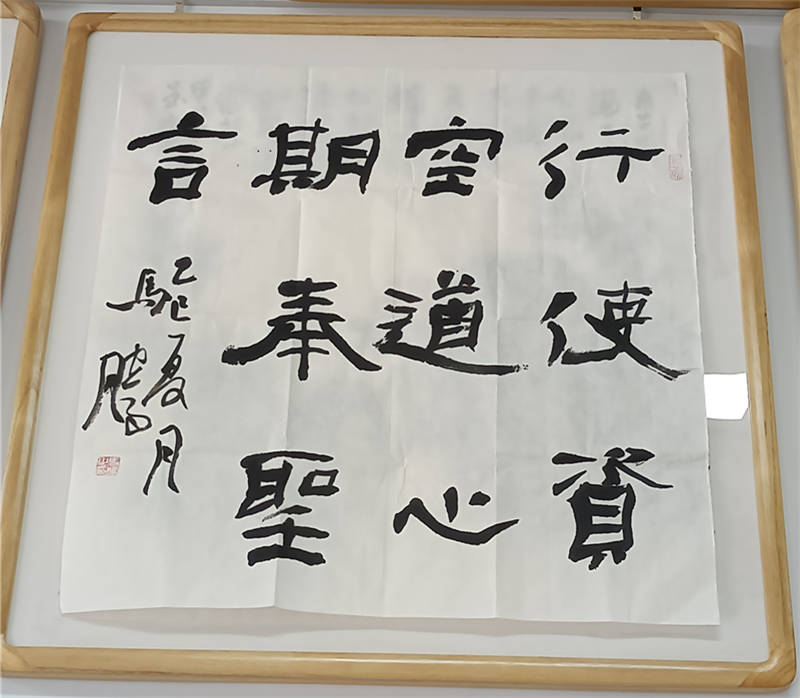 行使資
空道心
期奉聖
言
乙巳夏月
騰